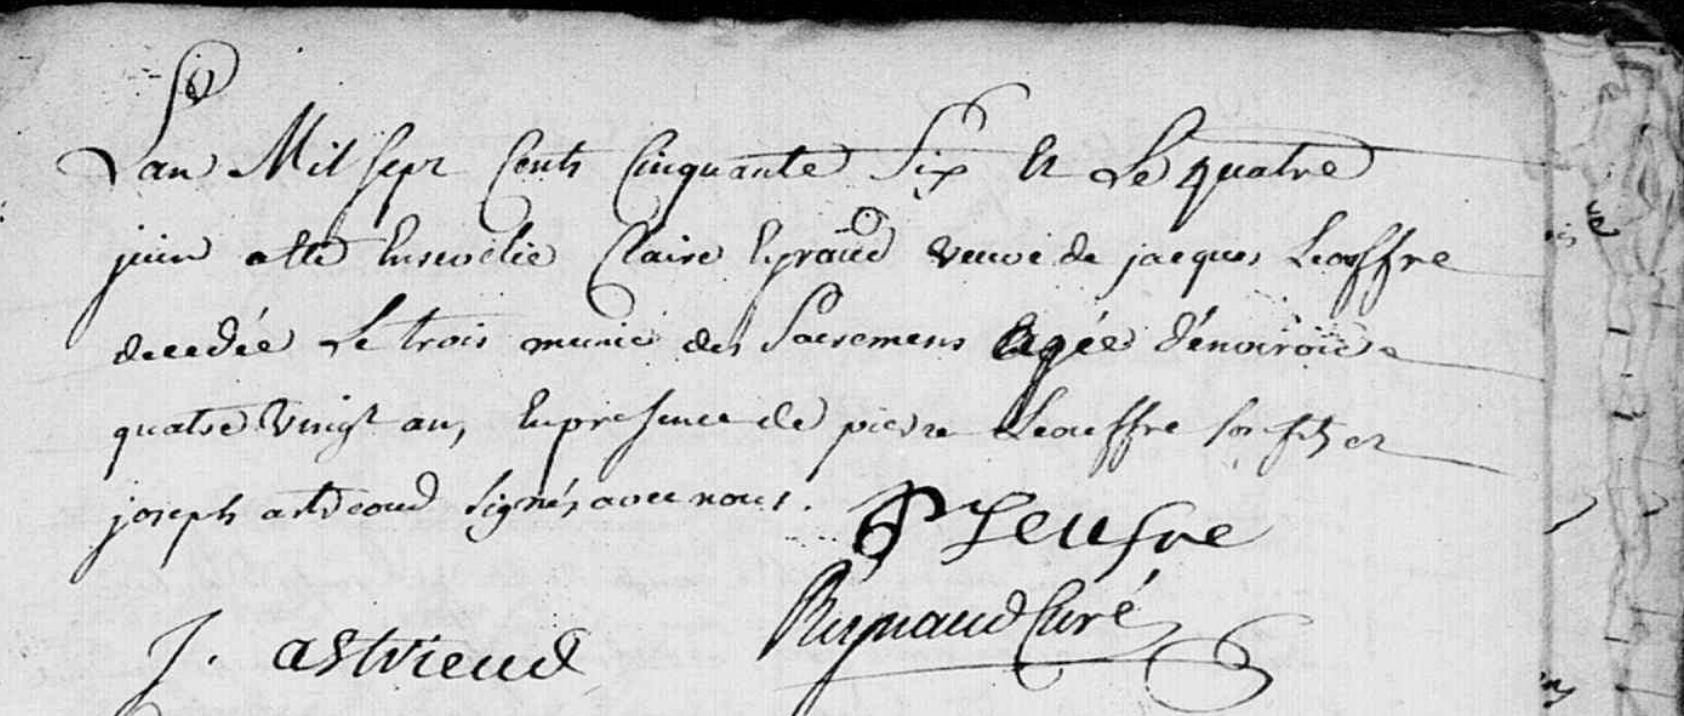 L'an Mil sept Cents Cinquante Six Et Le quatre
juin a été Ensevelie Claire Eyraud veuve de jacques Leouffre
decedée Le trois munie des Sacremens Agée d'environ
quatre Vingt ans, En presence de pierre Leouffre son fils et
joseph astreoud Signés avec nous.
P Jeufre
J. astrieud
Reynaud Curé